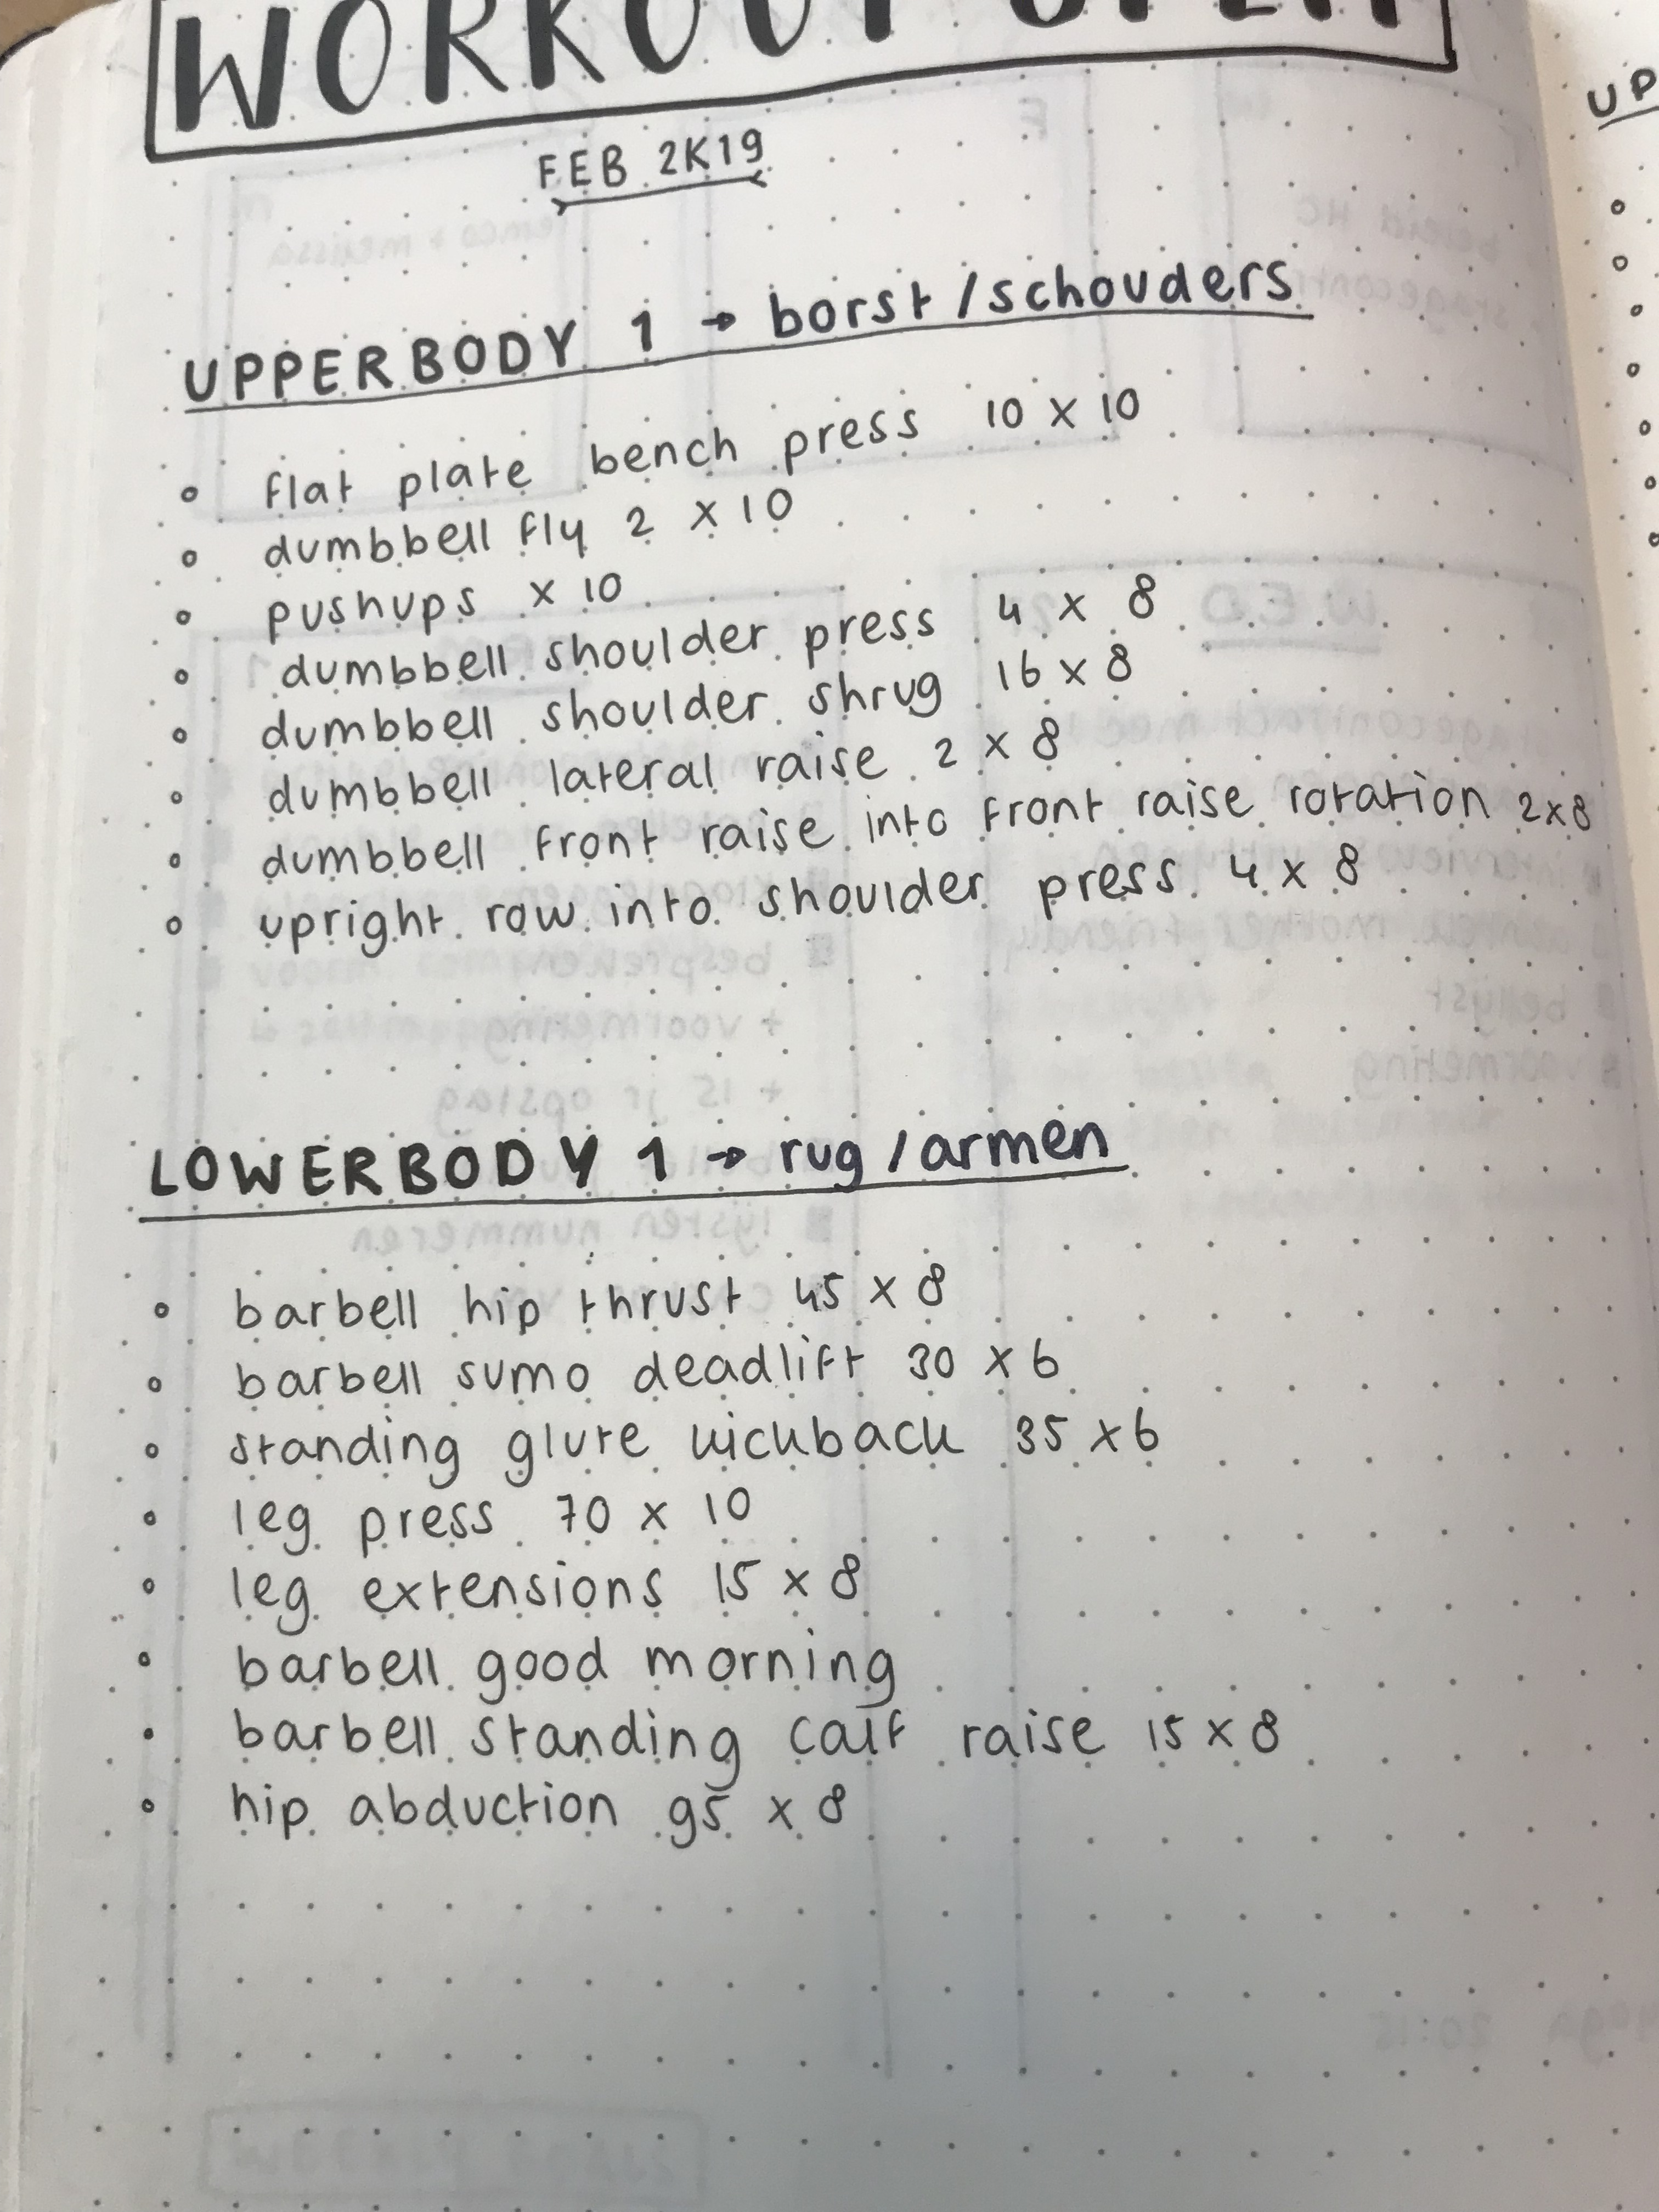 WORKOUT SPLIT
FEB 2K19
UPPERBODY 1 → borst/schouders
° flat plate bench press 10 x 10
° dumbbell fly 2 x 10
° pushups x 10
° dumbbell shoulder press 4 x 8
° dumbbell shoulder shrug 16 x 8
° dumbbell lateral raise 2 x 8
° dumbbell front raise into front raise rotation 2x8
° upright row into shoulder press 4 x 8
LOWERBODY 1 → rug/armen
° barbell hip thrust 45 x 8
° barbell sumo deadlift 30 x 6
° standing glute kickback 35 x 6
° leg press 70 x 10
° leg extensions 15 x 8
° barbell good morning
° barbell standing calf raise 15 x 8
° hip abduction 95 x 8
UP